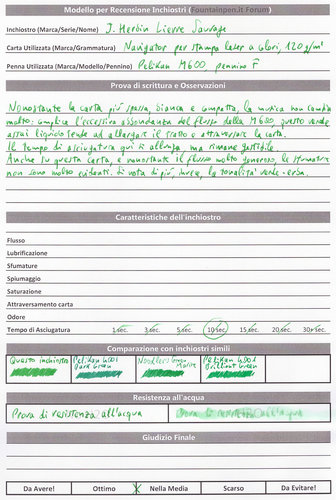 Modello per Recensione Inchiostri (Fountainpen.it Forum)
Inchiostro (Marca/Serie/Nome) J. Herbin Lierre Sauvage
Carta Utilizzata (Marca/Grammatura) Navigator per stampa laser a colori, 120 g/m²
Penna Utilizzata (Marca/Modello/Pennino) Pelikan M600, pennino F
Prova di scrittura e Osservazioni
Nonostante la carta più spessa, bianca e compatta, la musica non cambia
molto: complice l'eccessiva abbondanza del flusso della M600, questo verde
assai liquido tende ad allargare il tratto e attraversare la carta.
Il tempo di asciugatura qui si allunga, ma rimane gestibile.
Anche su questa carta, e nonostante il flusso molto generoso, le sfumature
non sono molto evidenti. Si nota di più, invece, la tonalità verde-erba.
Caratteristiche dell'inchiostro
Flusso
Lubrificazione
Sfumature
Spiumaggio
Saturazione
Attraversamento carta
Odore
Tempo di Asciugatura 1 sec. 3 sec. 5 sec. 10 sec. 15 sec. 20 sec. 30+ sec.
Comparazione con inchiostri simili
Questo inchiostro Pelikan 4001 Noodlers Green Pelikan 4001
Dark Green Marine Brilliant Green
Resistenza all'acqua
Prova di resistenza all'acqua Prova di resistenza all'acqua
Giudizio Finale
Da Avere! Ottimo X Nella Media Scarso Da Evitare!